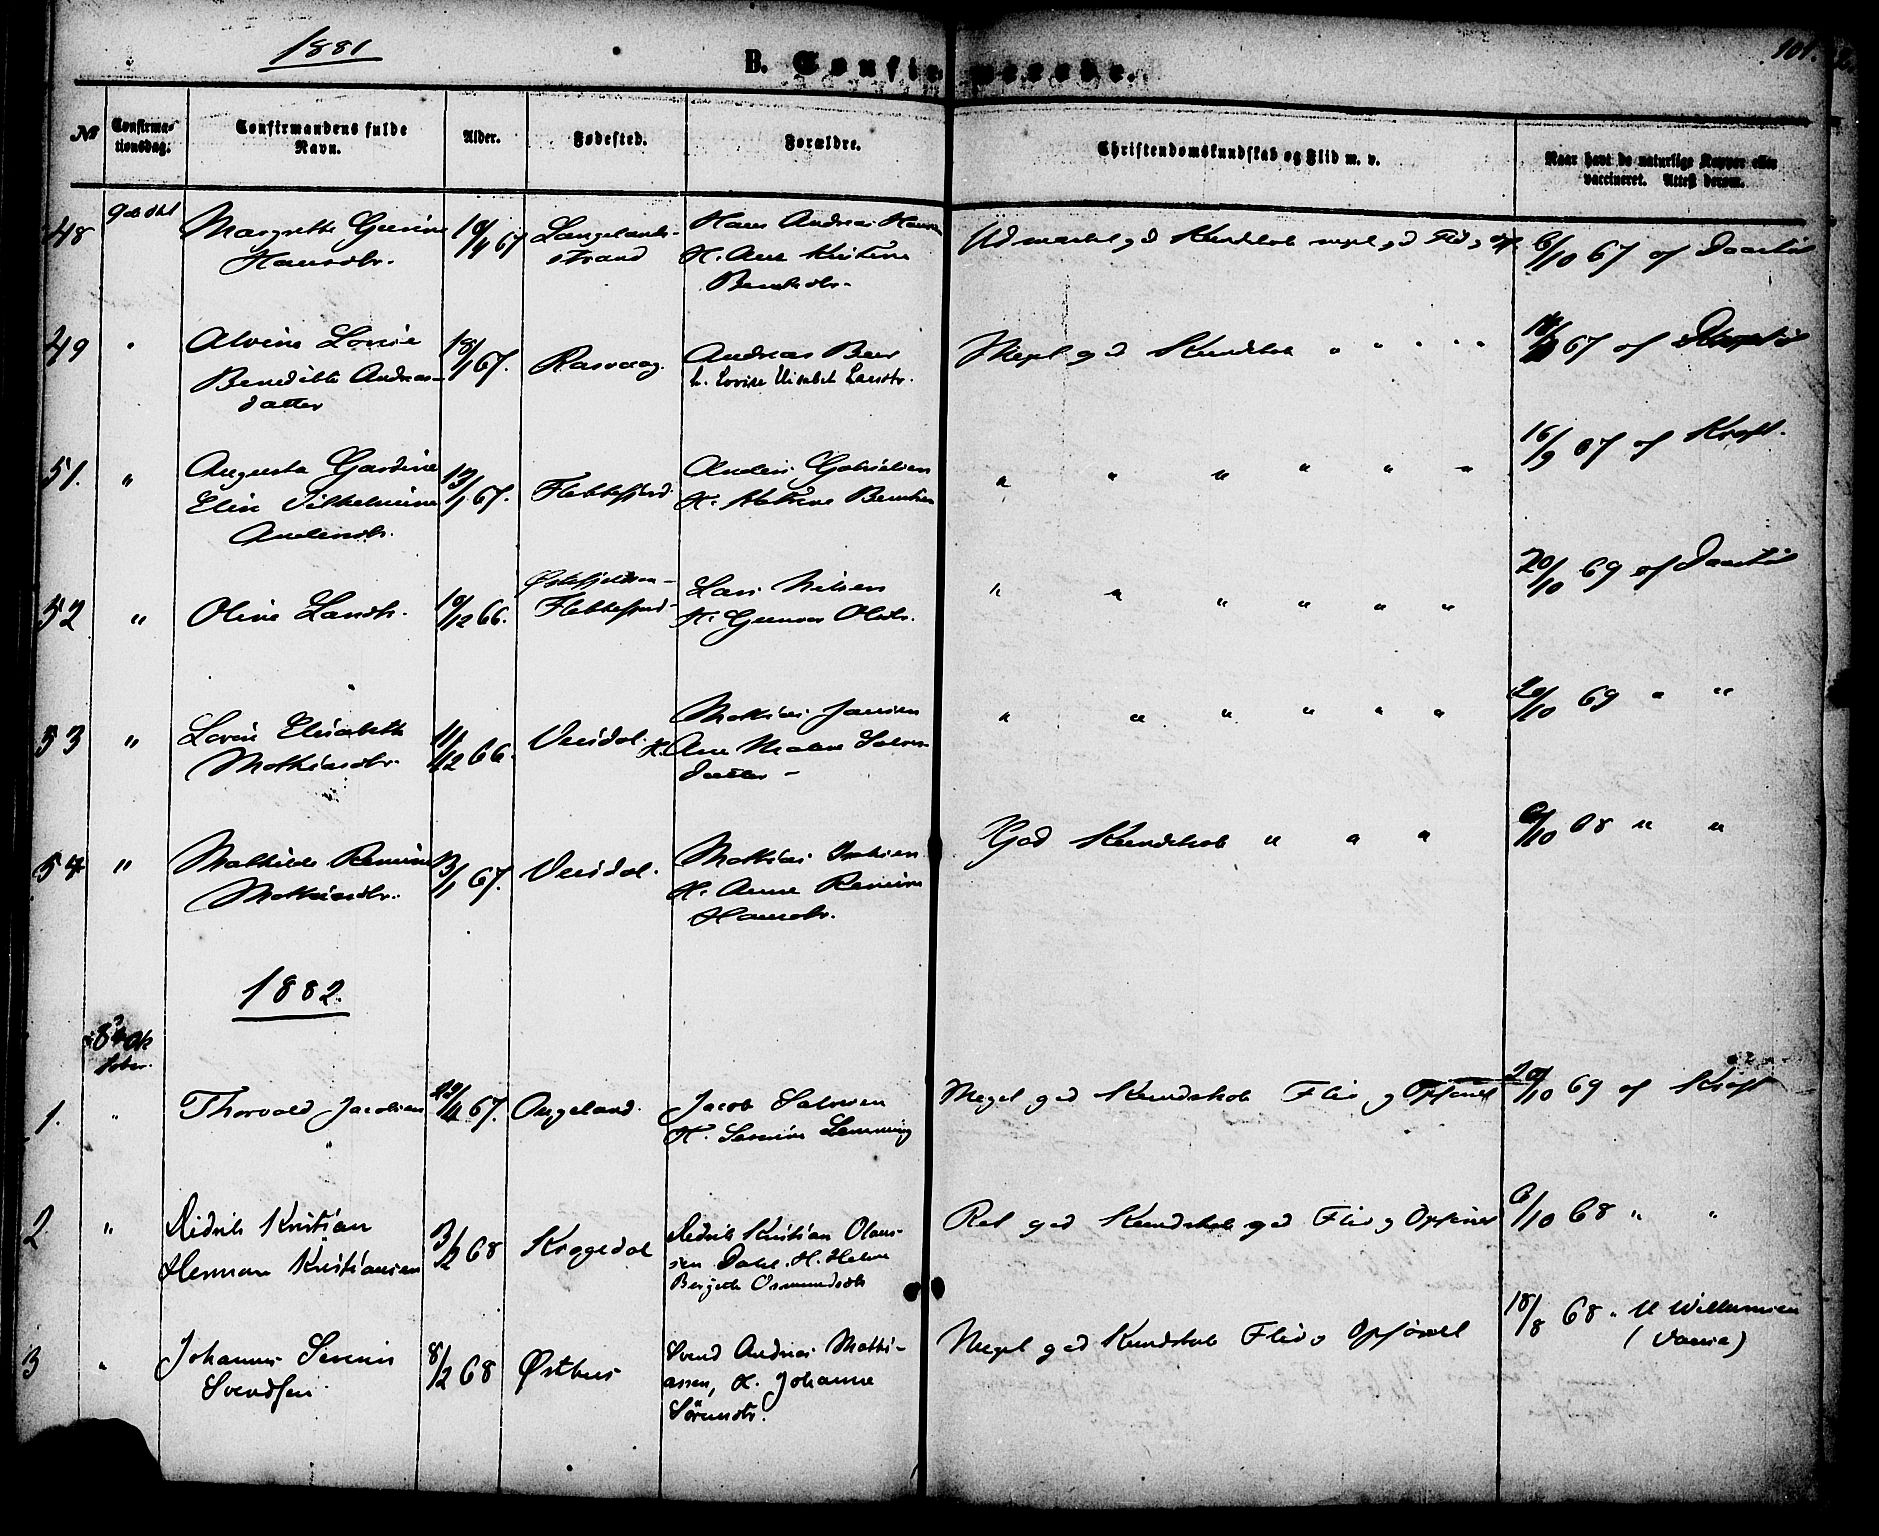 1881
B. Confirmerede.
101.
No
Confirma-
tionsdag.
Confirmandens fulde
Navn.
Alder.
Fødested.
Forældre.
Christendomskundskab og Flid m. v.
Naar havt de naturlige Kopper eller
vaccineret. Attest derom.
48
Margrethe Gurine
Hansdtr.
67
Langelands-
strand
Hans Andreas Hansen
H. Ane Kristine
Berntsdtr.
Udmærket gd Kundskab meget gd Flid
6/10 67 af
49
"
Alvine Lovise
Benedikte Andreas-
datter
18/1 67.
Rasvaag.
Andreas Beer
h. Lovise Elisabet Larsdtr.
Meget god Kundskab " " " " "
67 af
51.
"
Augusta Gardine
Eline Vilhelmine
Andersdtr.
13/1 67.
Flekkefjord.
Anders Gabrielsen
H. Berntsen
" " " " " "
16/9 67 af Kraft.
52
"
Oline Larsdtr.
10/12 66.
Flekkefjord
Lars Nilsen
H. Gunvor Olsdtr.
" " " " " "
20/10 69 af
53
"
Lovise Elisabeth
Mathiasdtr.
11/12 66.
Veisdal.
Mathias Jansen
H. Ane Malene Salves-
datter
" " " " " "
20/10 69 " "
54
"
Mathilde Remine
Mathiasdtr.
13/1 67.
Veisdal.
Mathias
H. Anne Remine
Hansdtr.
God Kundskab " " "
6/10 68 " "
1882.
8de Ok
tober.
1.
"
Thorvald Jacobsen
67.
Angeland.
Jacob Salvesen
H. Serine Lemming
Meget god Kundskab Flid og Opførsel
20/10 69 af Kraft
2.
"
Didrik Kristian
Herman Kristiansen
3/2 68
Krogedal
Didrik Kristian Olaus-
sen Dahl. H. Helene
Bergette Osmundsdtr
Ret god Kundskab god Flid og Opførsel
6/10 68 " "
3
"
Johannes Serenius
Svendsen
8/2 68
Østhus
Svend Andreas Mathi-
assen, H. Johanne
Sørensdtr.
Meget god Kundskab Flid o Opførsel
18/8 68 " M Willumsen
(Vanse)